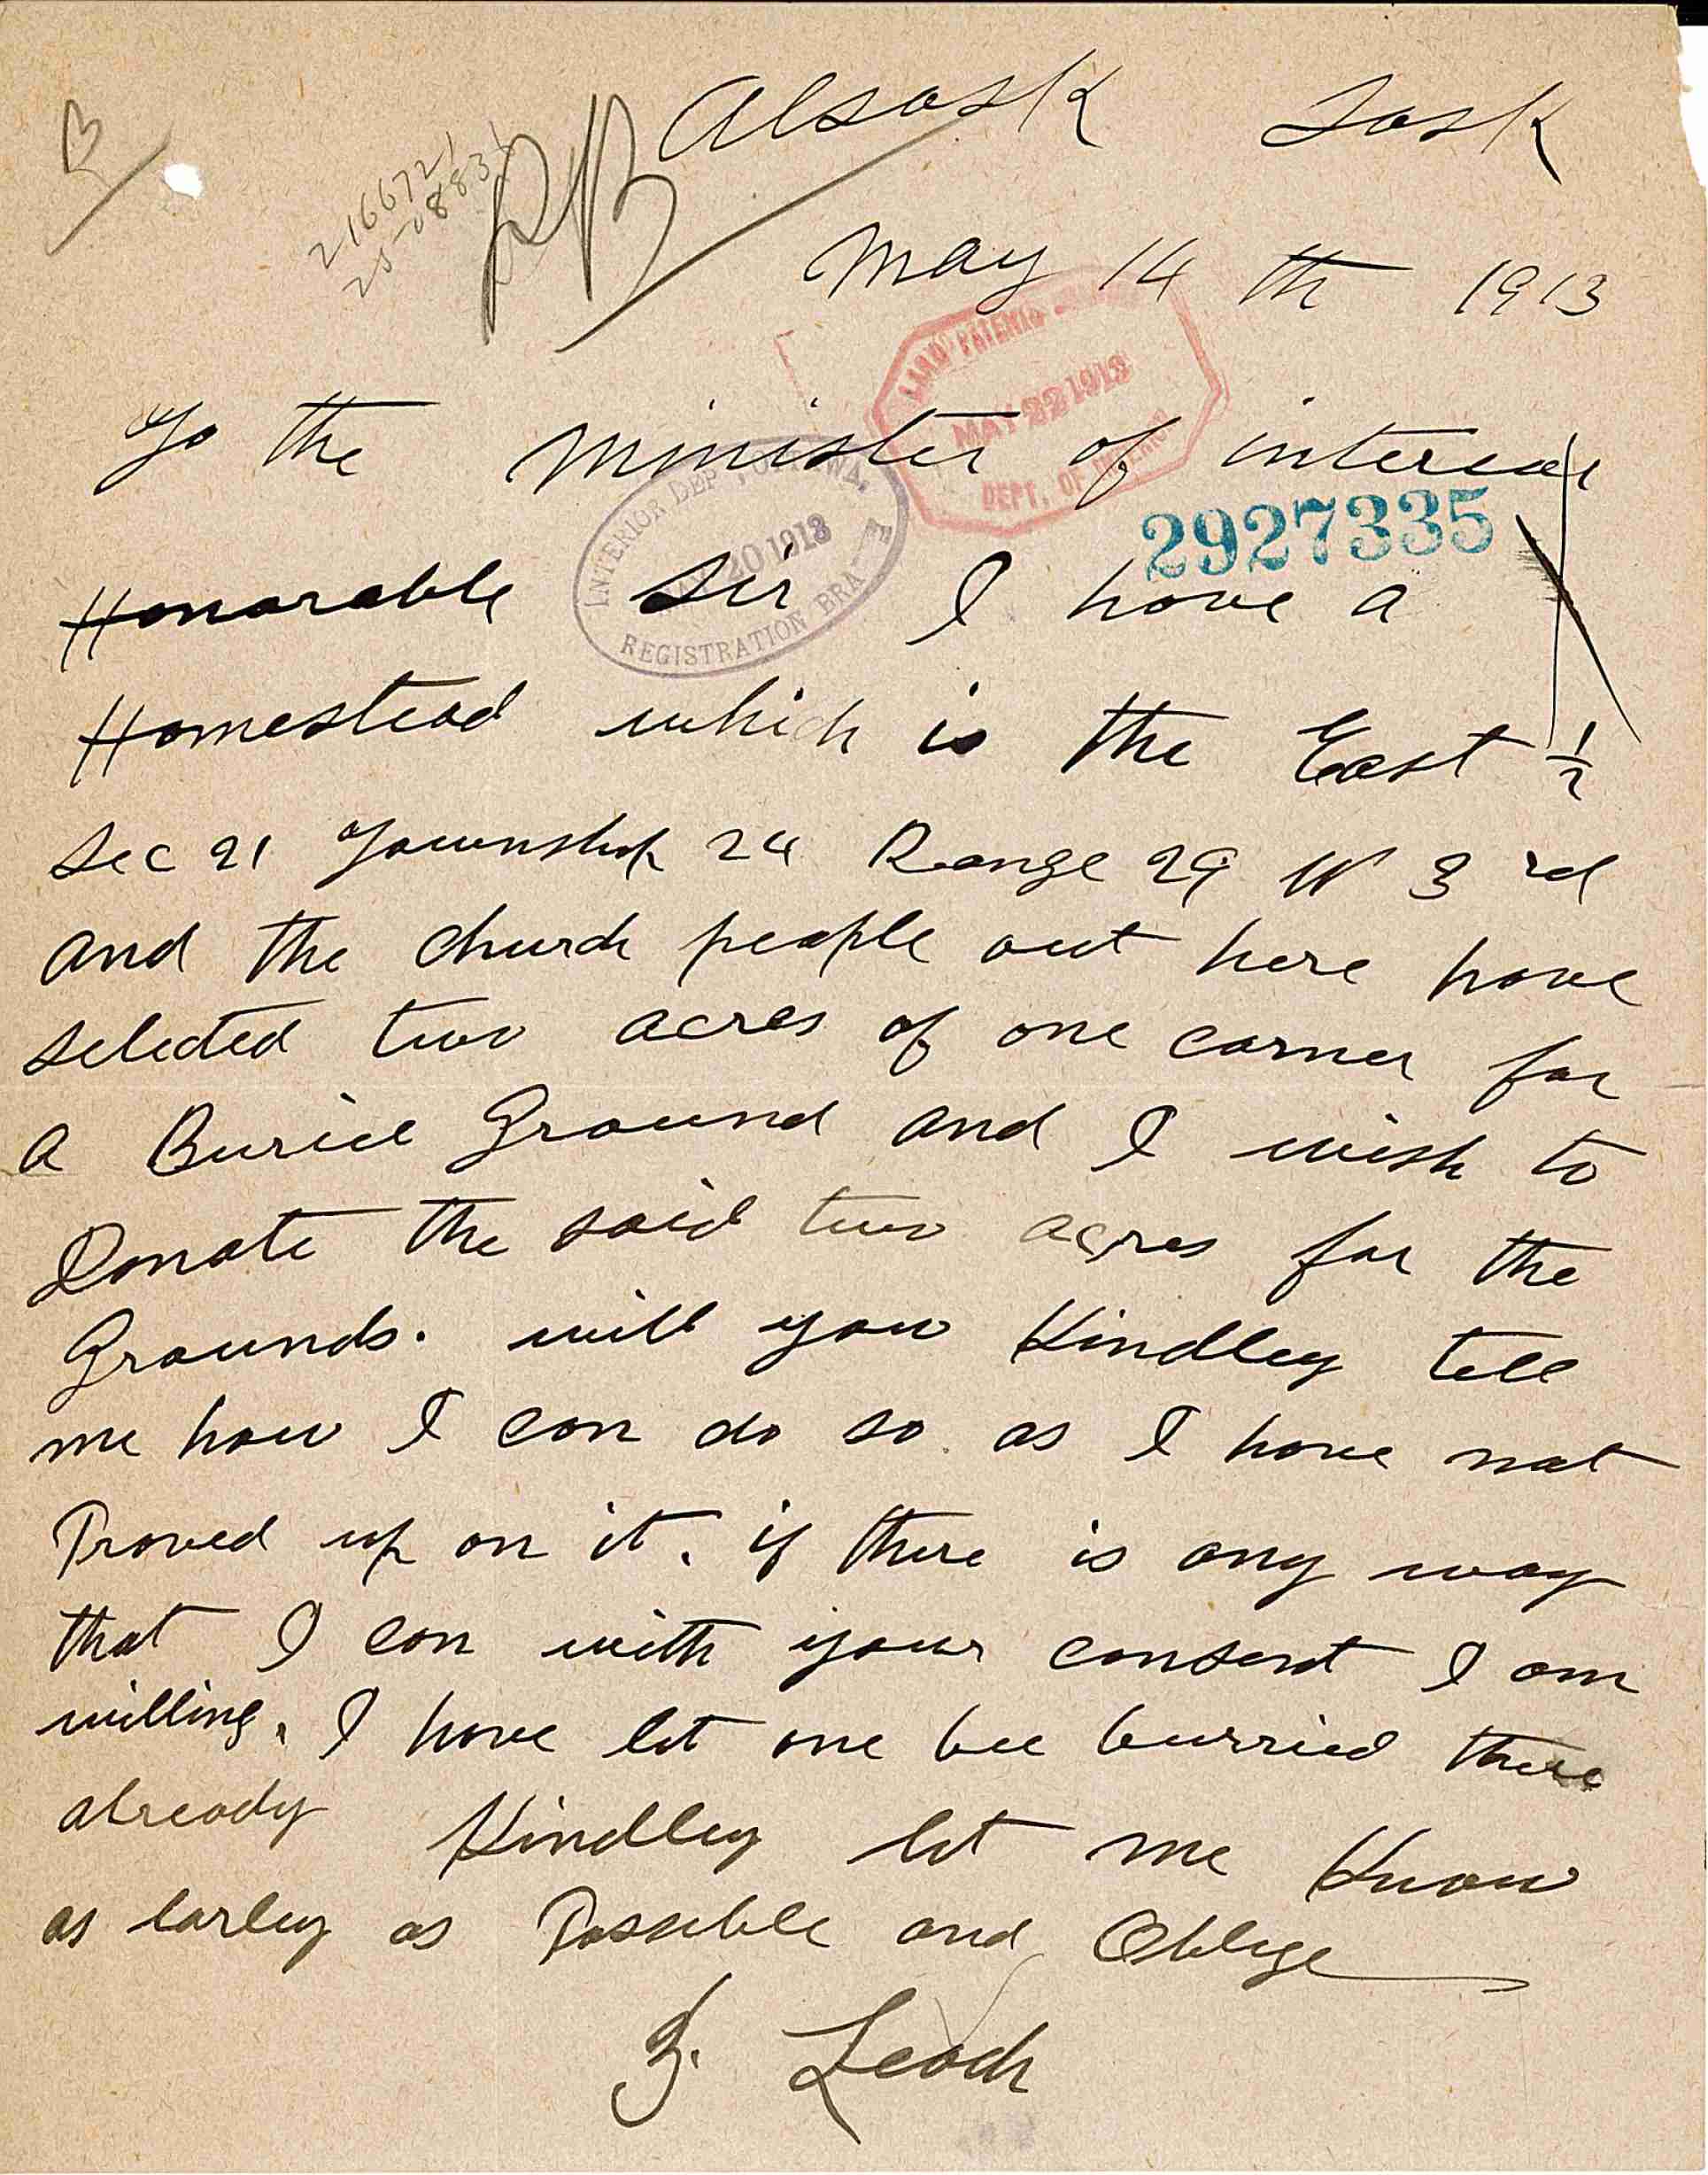 Alsask Sask
2166721
RB
May 14 th 1913
LAND PATENTS
MAY 22 1913
DEPT. OF INTERIOR
To the Minister of interior
2927335
INTERIOR DEPT, OTTAWA.
20 1913
REGISTRATION BRA
Honorable Sir I have a
Homestead which is the East 1/2
Sec 21 Township 24 Range 29 W 3 rd
and the church people out here have
selected two acres of one corner for
a Buriel Ground and I wish to
Donate the said two acres for the
Grounds. will you Kindley tell
me how I can do so. as I have not
Proved up on it. if there is any way
that I can with your consent I am
willing. I have let one bee burried there
already Kindley let me Know
as earley as Possible and Oblige
Leach